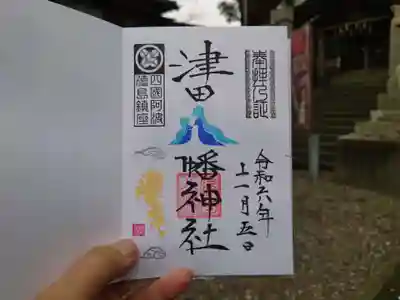 奉拜乃証
令和六年
十一月五日
津田八幡神社
四國阿波
徳島鎮座